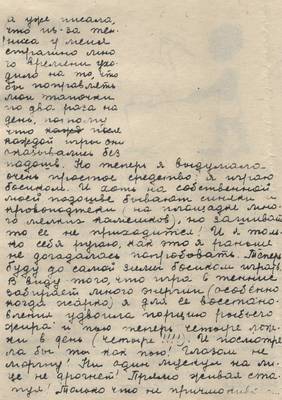 я уже писала,
что из-за тен-
ниса у меня
страшно мно
го времени ухо
дило на то, что
бы поправлять
мои тапочки
по два раза на
день, потому
что после
каждой игры они
оказывались без
подошв. Но теперь я выдумала
очень простое средство: я играю
босиком. И хоть на собственной
моей подошве бывают синяки и
кровоподтеки (на площадке мно-
го мелких камешков), но зашивать
то ее не приходится! И я толь-
ко себя ругаю, как это я раньше
не догадалась попробовать. Теперь
буду до самой зимы босиком играть.
В виду того, что игра в теннис
забирает много энергии (особенно
когда жарко) я для ее восстано-
вления удвоила порцию рыбьего
жира: я пью теперь четыре лож-
ки в день (четыре!!!!). И посмотре
ла бы ты как пью! Глазом не
моргну! Ни один мускул на ли-
це не дрогнет! Прямо живая ста-
туя! Только что не причмокиваю